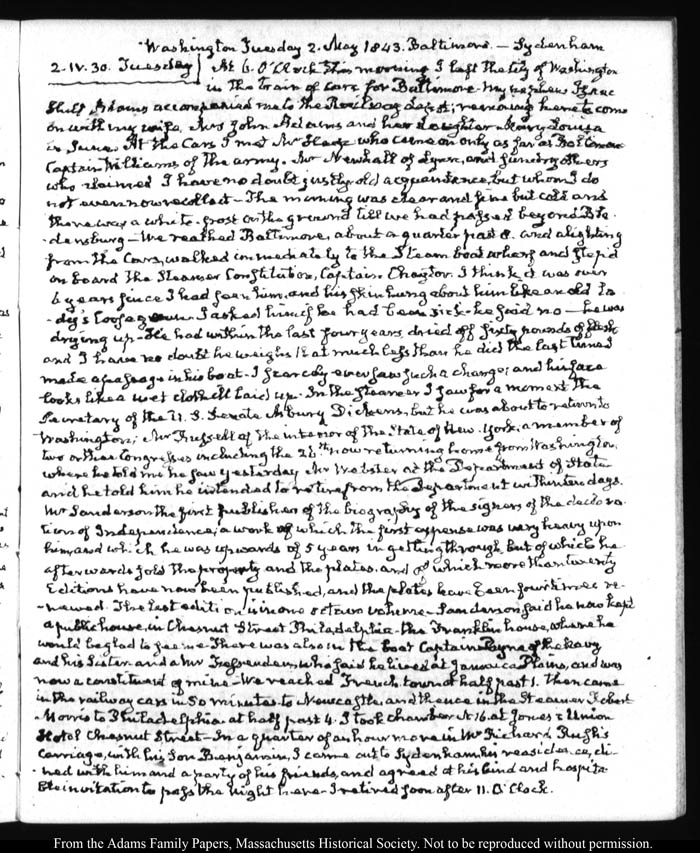 Washington Tuesday 2. May 1843. Baltimore. — Sydenham
2. IV. 30. Tuesday At 6. O'Clock this morning I left the City of Washington
in the train of cars for Baltimore. My nephew Isaac
Hull Adams accompanied me to the Railway depot, remaining here to come
on with my wife, Mrs John Adams and her daughter Mary Louisa
in June. At the Cars I met Mr who came on only as far as Baltimore
Captain Williams of the army. Mr Newhall of Lynn, and sundry others
who claimed I have no doubt justly old acquaintance, but whom I do
not even now recollect — The morning was clear and fine but cold and
there was a white-frost on the ground till we had passed beyond Bla
-densburg — We reached Baltimore, about a quarter past 8. and alighting
from the Cars, walked immediately to the Steam boat wharf and step'd
on board the Steamer Constitution, Captain Chaytor. I think it was over
6 years since I had seen him, and his skin hung about him like an old la
-dy's loose gown. I asked him if he had been sick — he said no — he was
drying up — He had within the last four years, dried off sixty pounds of flesh
and I have no doubt he weighs that much less than he did the last time I
made a passage in his boat — I scarcely ever saw such a change; and his face
looks like a wet cloth laid up. In the steamer I saw for a moment the
Secretary of the U. S. Senate Asbury Dickens, but he was about to return to
Washington; Mr Russell of the interior of the State of New-York, a member of
two or three Congresses including the now returning home from Washington,
where he told me he saw yesterday Mr Webster at the Department of State
and he told him he intended to retire from the Department within ten days.
Mr Sanderson the first publisher of the biography of the signers of the declara-
tion of Independence; a work of which the first expense was very heavy upon
him and which he was upwards of 5 years in getting through, but of which he
afterwards sold the property and the plates. and of which more than twenty
Editions have now been published, and the plates have been four times re-
-newed. The last edition is in one octavo volume — Sanderson said he now kept
a public house, in Chesnut Street Philadelphia — the Franklin house, where he
would be glad to see me — There was also in the boat Captain Payne of the Navy
and his Sister and a Mr Fessenden, who said he lived at Jamaica Plains, and was
now a constituent of mine — We reached French-town at half past 1. Then came
in the railway cars in 50 minutes to Newcastle, and thence in the Steamer Robert
Morris to Philadelphia at half past 4. I took chamber N. 16. at Jones's Union
Hotel Chesnut Street — In a quarter of an hour more in Mr Richard Rush's
Carriage, with his Son Benjamin, I came out to Sydenham his residence, di-
-ned with him and a party of his friends, and agreed at his kind and hospita-
ble invitation to pass the night here — I retired soon after 11. O'Clock.
From the Adams Family Papers, Massachusetts Historical Society. Not to be reproduced without permission.